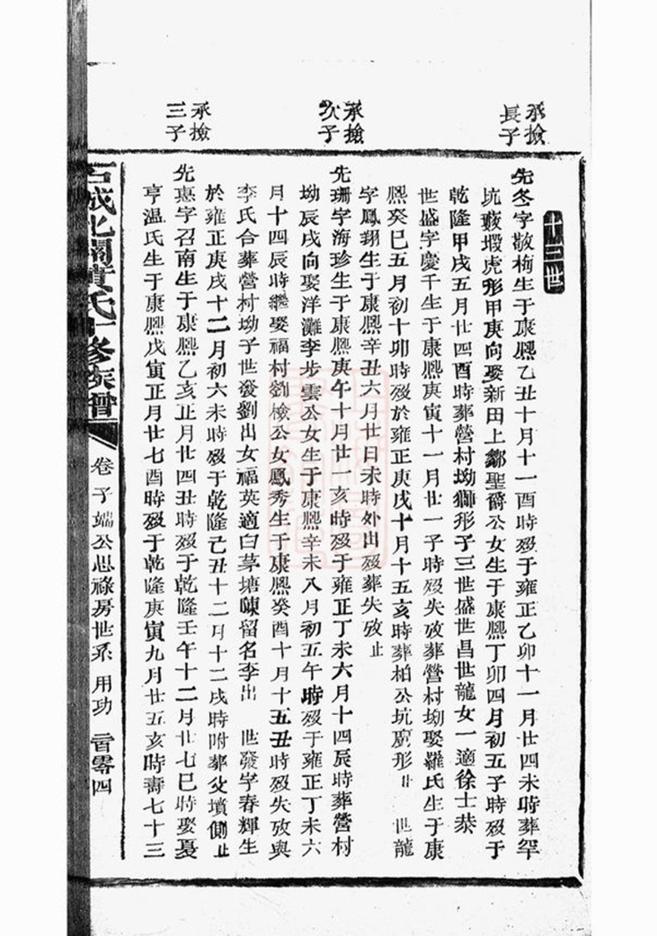 十三世
承撿長子
先冬字敬梅生于康熙乙丑十月十一酉時歿于雍正乙卯十一月廿四未時葬罕
坑藪塅虎形甲庚向娶新田上鄒聖爵公女生于康熙丁卯四月初五子時歿于
乾隆甲戌五月廿四酉時葬營村坳獅形子三世盛世昌世龍女一適徐士恭
世盛字慶千生于康熙庚寅十一月廿一子時歿失攷葬營村坳娶羅氏生于康
熙癸巳五月初十卯時歿於雍正庚戌十月十五亥時葬柏公坑窩形廿 世龍
字鳳翔生于康熙辛丑六月廿日未時外出歿葬失攷止
承撿次子
先珊字海珍生于康熙庚午十月廿一亥時歿于雍正丁未六月十四辰時葬營村
坳辰戌向娶洋灘李步雲公女生于康熙辛未八月初五午時歿于雍正丁未六
月十四辰時繼娶福村劉檢公女鳳秀生于康熙癸酉十月十五丑時歿失攷與
李氏合葬營村坳子世發劉出女福英適白茅塘陳留名李出 世發字春輝生
於雍正庚戌十二月初六未時歿于乾隆己丑十二月十二戌時附葬父墳側止
承撿三子
先惠字召南生于康熙乙亥正月廿四丑時歿于乾隆壬午十二月廿七巳時娶憂
亨溫氏生于康熙戊寅正月廿七酉時歿于乾隆庚寅九月廿五亥時壽七十三
石城北關黃氏十修族譜 卷子 端公思祿房世系 用功 二百零四